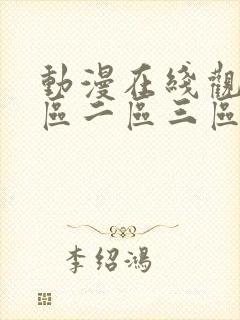 動漫在綫觀
區二區三區
李绍鴻